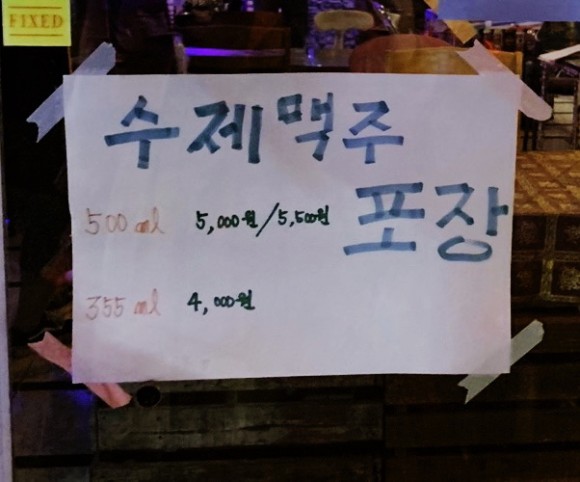 FIXED
수제맥주
포장
500 ml 5,000원/5,500원
355 ml 4,000원